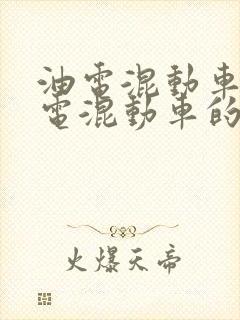 油電混動車
電混動車的
火爆天帝